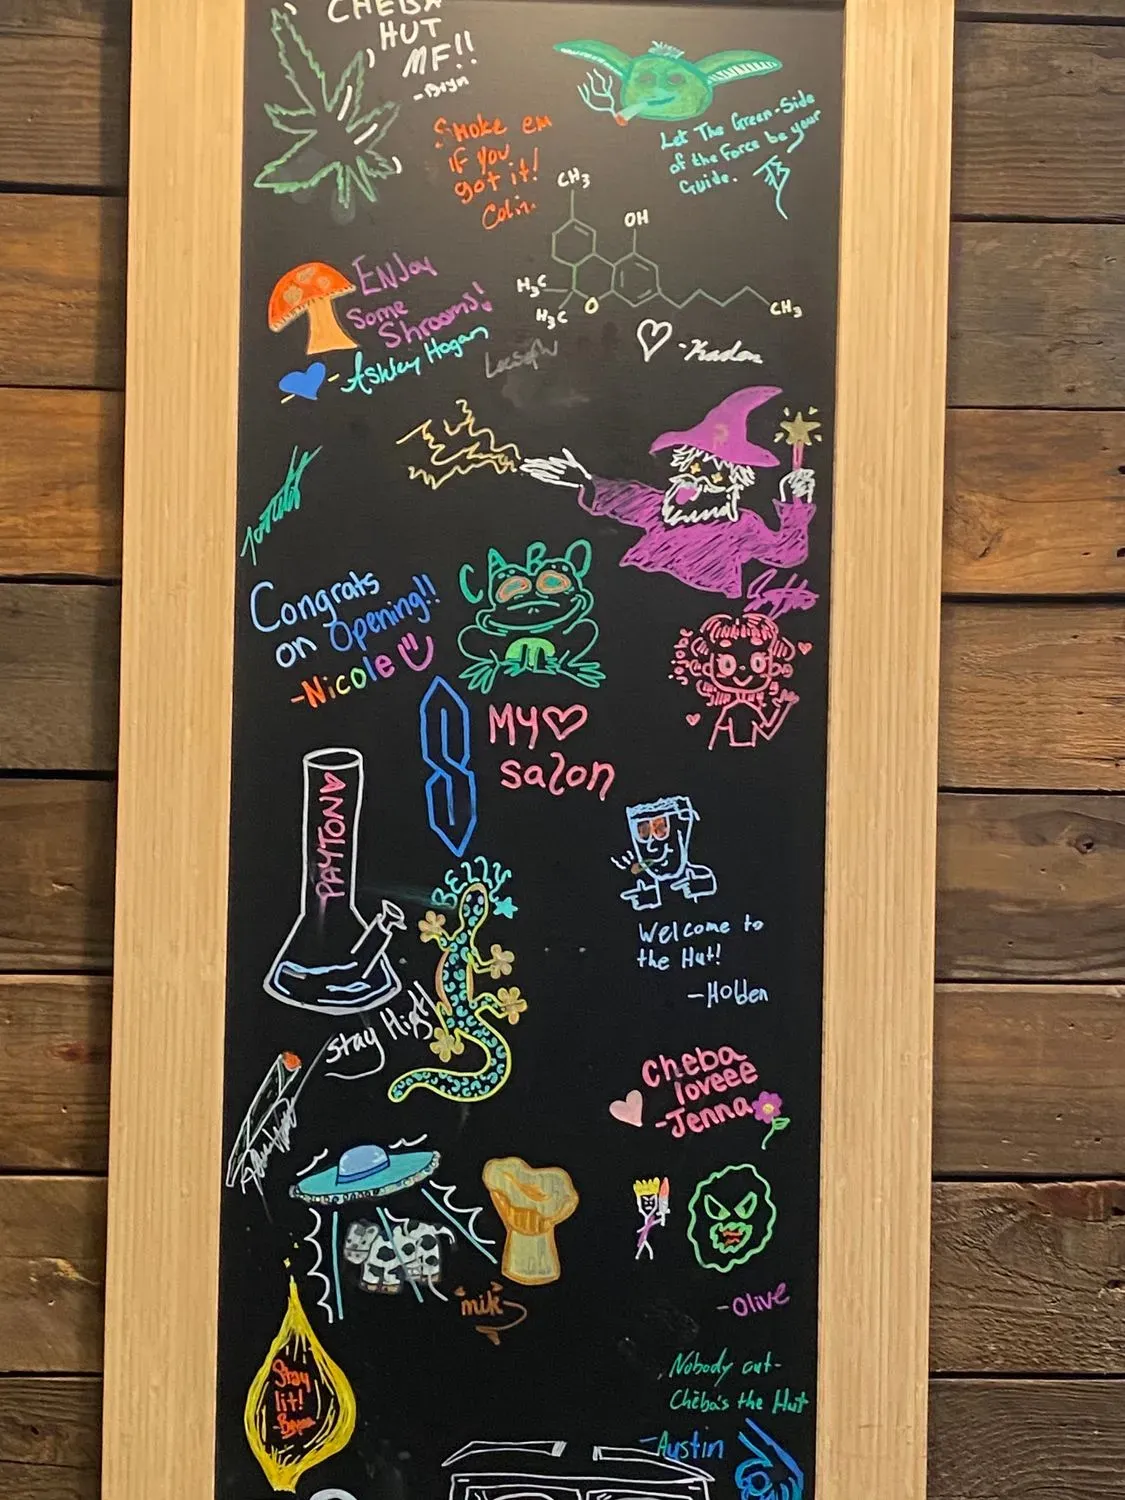 CHEBA
HUT
MF!!
-Bryn
Smoke em
if you
got it!
Colin
Let The Green-Side
of the Force be your
Guide.
CH₃
OH
H₃C
H₃C
O
CH₃
ENJoy
Some
Shrooms!
-Ashley Hogan
-Kaden
Congrats
on Opening!!
-Nicole
CABO
jojobe
MY♡
salon
PAYTON
BEZZY
Welcome to
the Hut!
-Holden
Stay High!
Cheba
loveee
-Jenna
"mik"
-Olive
Stay
lit!
Nobody out-
Cheba's the Hut
-Austin